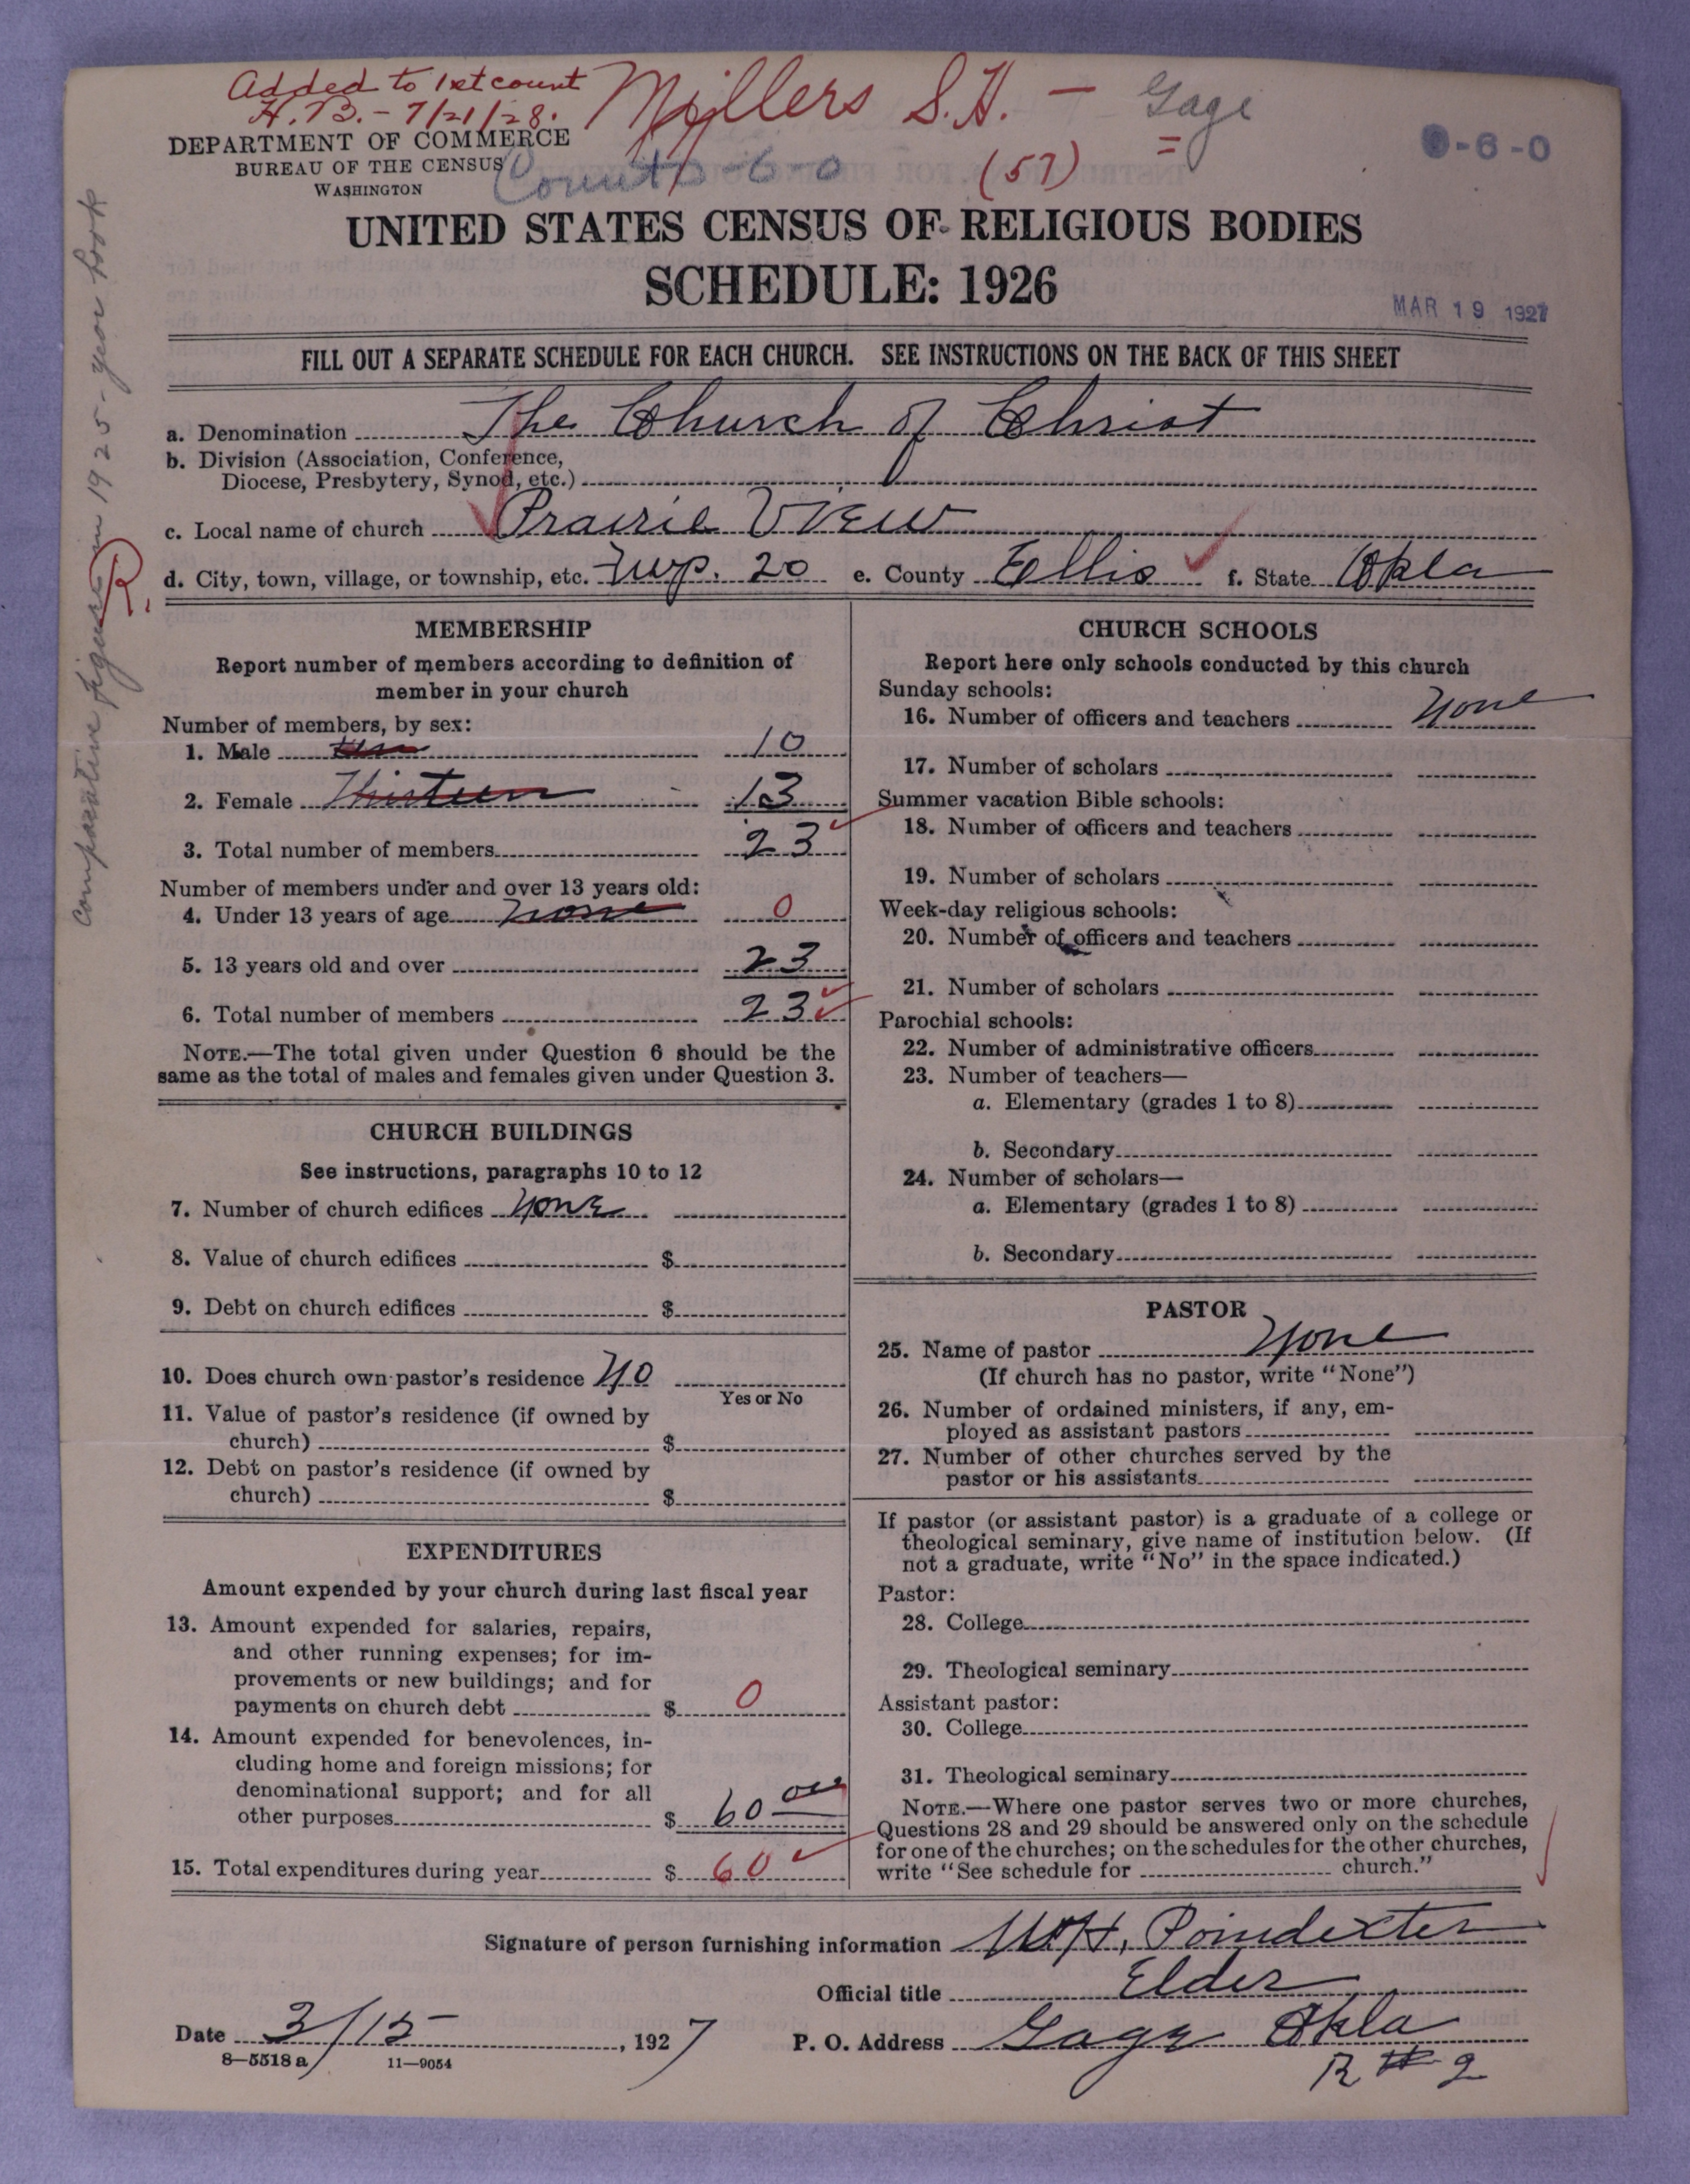 Added to 1st count
H.B. - 7/21/28.
Millers S.H. - Gage
=
DEPARTMENT OF COMMERCE
BUREAU OF THE CENSUS
WASHINGTON
Count -6-0
(57)
-6-0
UNITED STATES CENSUS OF RELIGIOUS BODIES
SCHEDULE: 1926
MAR 19 1927
FILL OUT A SEPARATE SCHEDULE FOR EACH CHURCH. SEE INSTRUCTIONS ON THE BACK OF THIS SHEET
Comparative figures in 1925-year book
R.
a. Denomination The Church of Christ
b. Division (Association, Conference,
Diocese, Presbytery, Synod, etc.)
c. Local name of church Prairie View
d. City, town, village, or township, etc. Twp. 20 e. County Ellis f. State Okla
MEMBERSHIP
Report number of members according to definition of
member in your church
Number of members, by sex:
1. Male ten 10
2. Female Thirteen 13
3. Total number of members 23
Number of members under and over 13 years old:
4. Under 13 years of age none 0
5. 13 years old and over 23
6. Total number of members 23
NOTE.—The total given under Question 6 should be the
same as the total of males and females given under Question 3.
CHURCH BUILDINGS
See instructions, paragraphs 10 to 12
7. Number of church edifices None
8. Value of church edifices $
9. Debt on church edifices $
10. Does church own pastor's residence No
Yes or No
11. Value of pastor's residence (if owned by
church) $
12. Debt on pastor's residence (if owned by
church) $
EXPENDITURES
Amount expended by your church during last fiscal year
13. Amount expended for salaries, repairs,
and other running expenses; for im-
provements or new buildings; and for
payments on church debt $ 0
14. Amount expended for benevolences, in-
cluding home and foreign missions; for
denominational support; and for all
other purposes $ 60 00
15. Total expenditures during year $ 60
CHURCH SCHOOLS
Report here only schools conducted by this church
Sunday schools:
16. Number of officers and teachers None
17. Number of scholars
Summer vacation Bible schools:
18. Number of officers and teachers
19. Number of scholars
Week-day religious schools:
20. Number of officers and teachers
21. Number of scholars
Parochial schools:
22. Number of administrative officers
23. Number of teachers—
a. Elementary (grades 1 to 8)
b. Secondary
24. Number of scholars—
a. Elementary (grades 1 to 8)
b. Secondary
PASTOR
25. Name of pastor None
(If church has no pastor, write "None")
26. Number of ordained ministers, if any, em-
ployed as assistant pastors
27. Number of other churches served by the
pastor or his assistants
If pastor (or assistant pastor) is a graduate of a college or
theological seminary, give name of institution below. (If
not a graduate, write "No" in the space indicated.)
Pastor:
28. College
29. Theological seminary
Assistant pastor:
30. College
31. Theological seminary
NOTE.—Where one pastor serves two or more churches,
Questions 28 and 29 should be answered only on the schedule
for one of the churches; on the schedules for the other churches,
write "See schedule for church."
Signature of person furnishing information W.H. Poindexter
Official title Elder
Date 3/15, 1927 P. O. Address Gage Okla
R #2
8—5518 a 11—9054